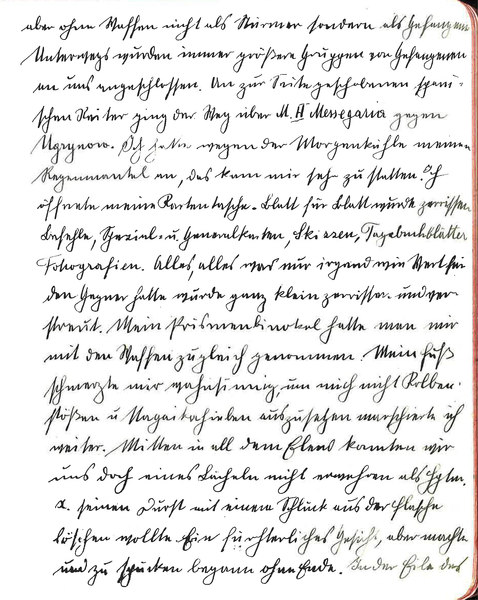 aber ohne Waffen nicht als Stürmer sondern als Gefangene
Unterwegs wurden immer größere Gruppen von Gefangenen
an uns angeschlossen. An zur Seite geschobenen spani-
schen Reiter ging der Weg über M. H. Messegaria gegen
Ugrynow. Ich hatte wegen der Morgenkühle meinen
Regenmantel an, das kam mir sehr zu statten. Ich
öffnete meine Kartentasche - Blatt für Blatt wurde zerrissen
Befehle, Spezial- u Generalkarten, Skizzen, Tagebuchblätter
Fotografien. Alles, alles was nur irgendwie Wert für
den Gegner hatte wurde ganz klein zerrissen und ver-
streut. Mein Prismenbinokel hatte man mir
mit den Waffen zugleich genommen. Mein Fuß
schmerzte mir wahnsinnig, um mich nicht Kolben-
stößen u Nagaikahieben auszusetzen marschierte ich
weiter. Mitten in all dem Elend konnten wir
uns doch eines Lächeln nicht erwehren als Hptm.
X. seinen Durst mit einem Schluck aus der Flasche
löschen wollte Ein fürchterliches Gesicht, aber machte
und zu spucken begann ohne Ende. In der Eile des